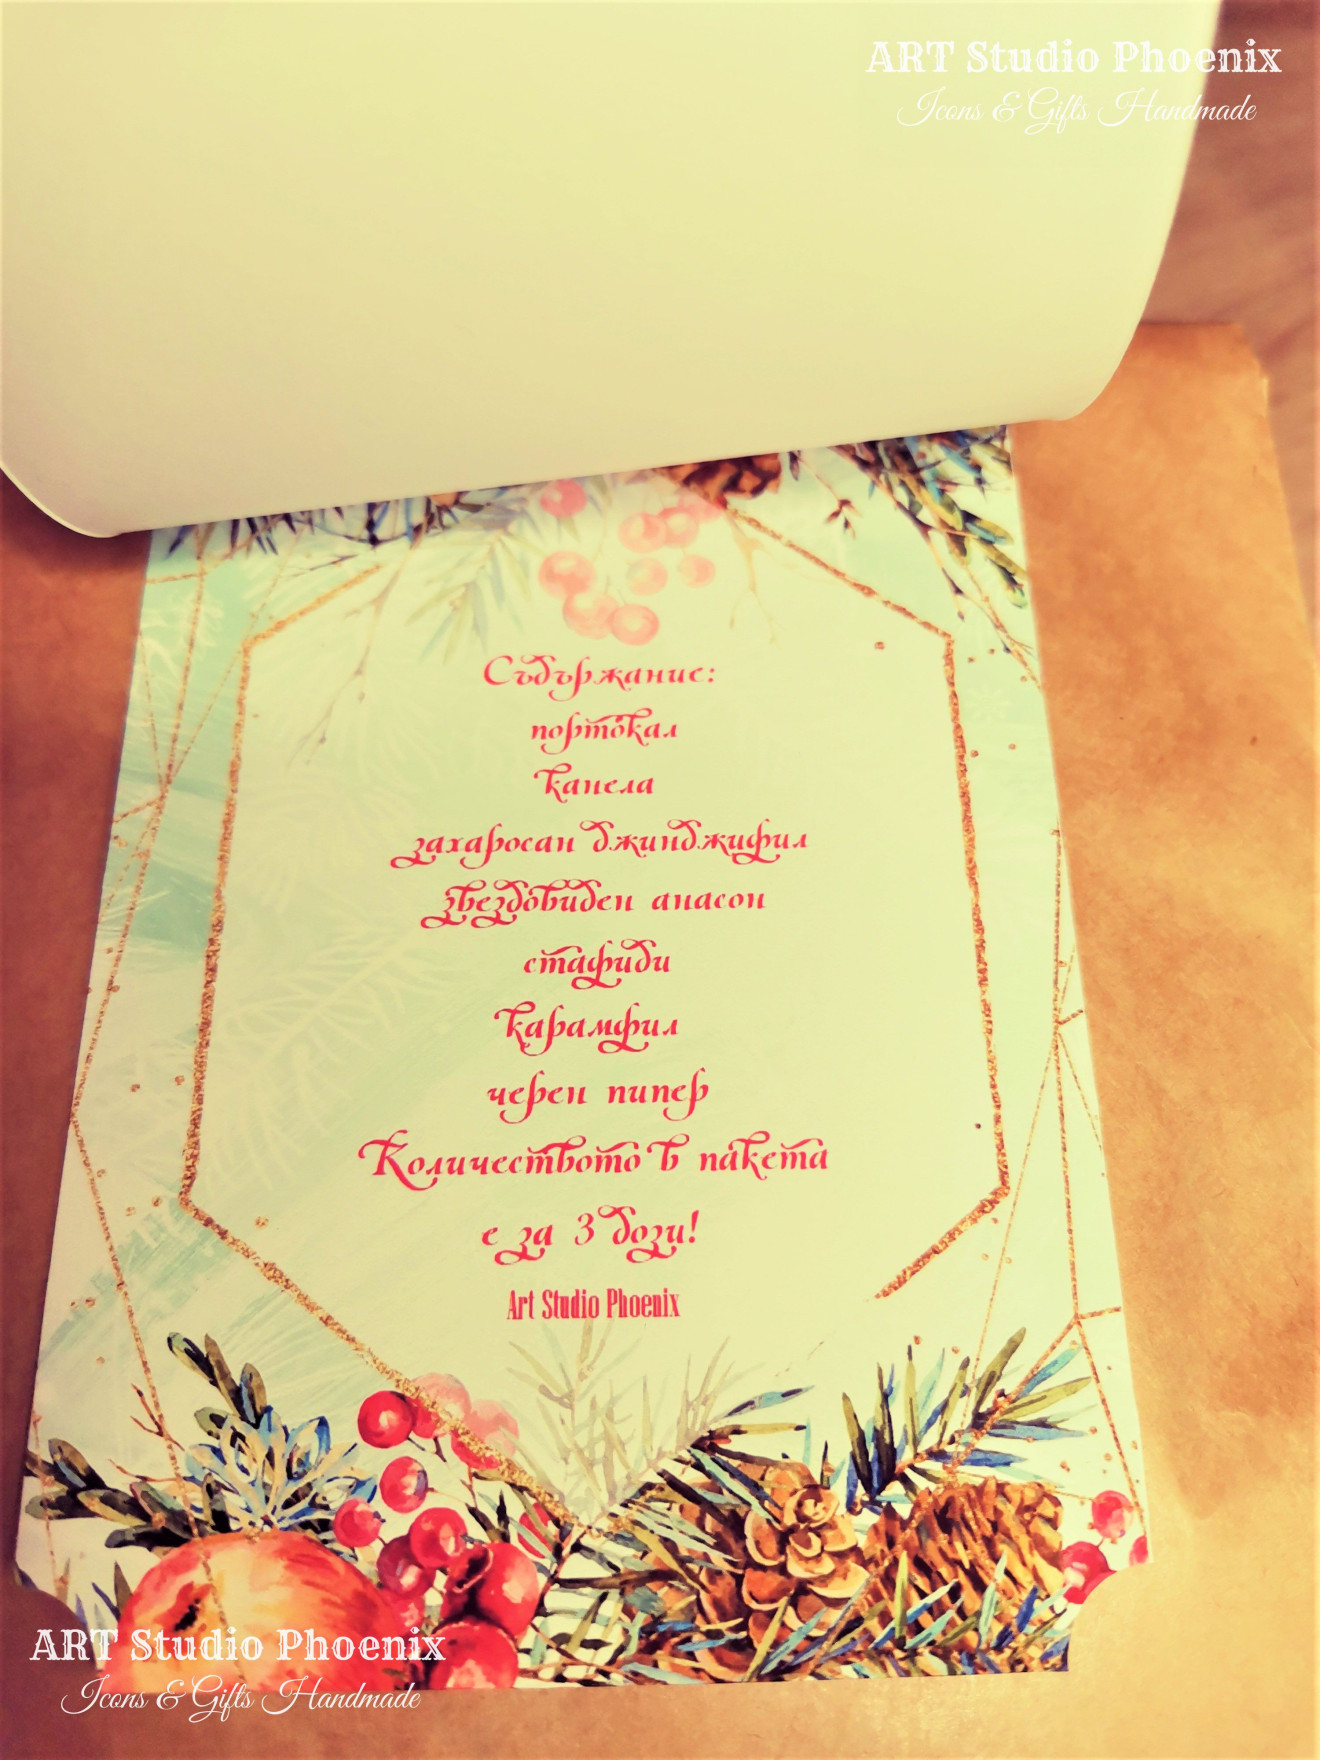 ART Studio Phoenix
Icons & Gifts Handmade
Съдържание:
портокал
канела
захаросан джинджифил
звездовиден анасон
стафиди
карамфил
черен пипер
Количеството в пакета
е за 3 дози!
Art Studio Phoenix
ART Studio Phoenix
Icons & Gifts Handmade